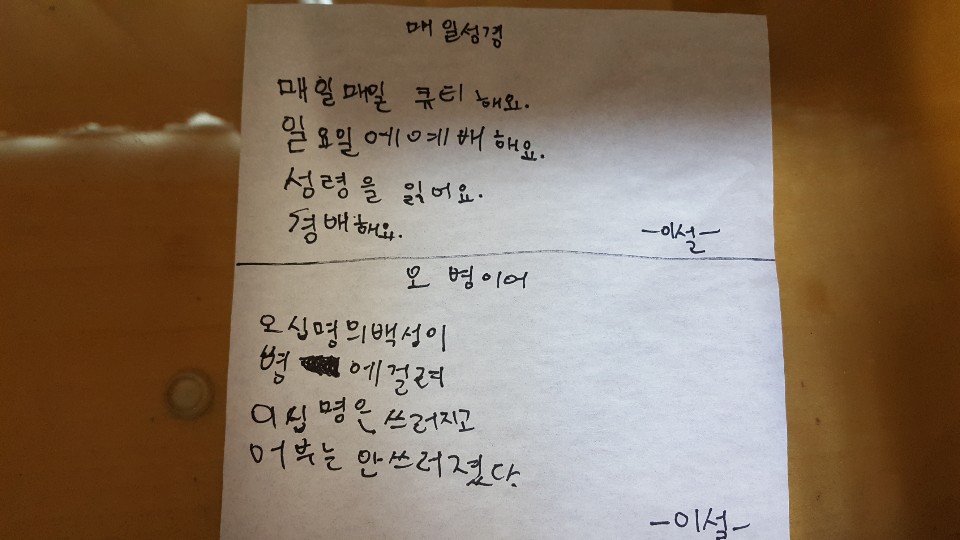 매일성경
매일매일 큐티 해요.
일요일에 예배해요.
성령을 읽어요.
경배해요.
-이설-
오병이어
오십명의백성이
병 에걸려
이십명은 쓰러지고
어부는 안쓰러졌다.
-이설-